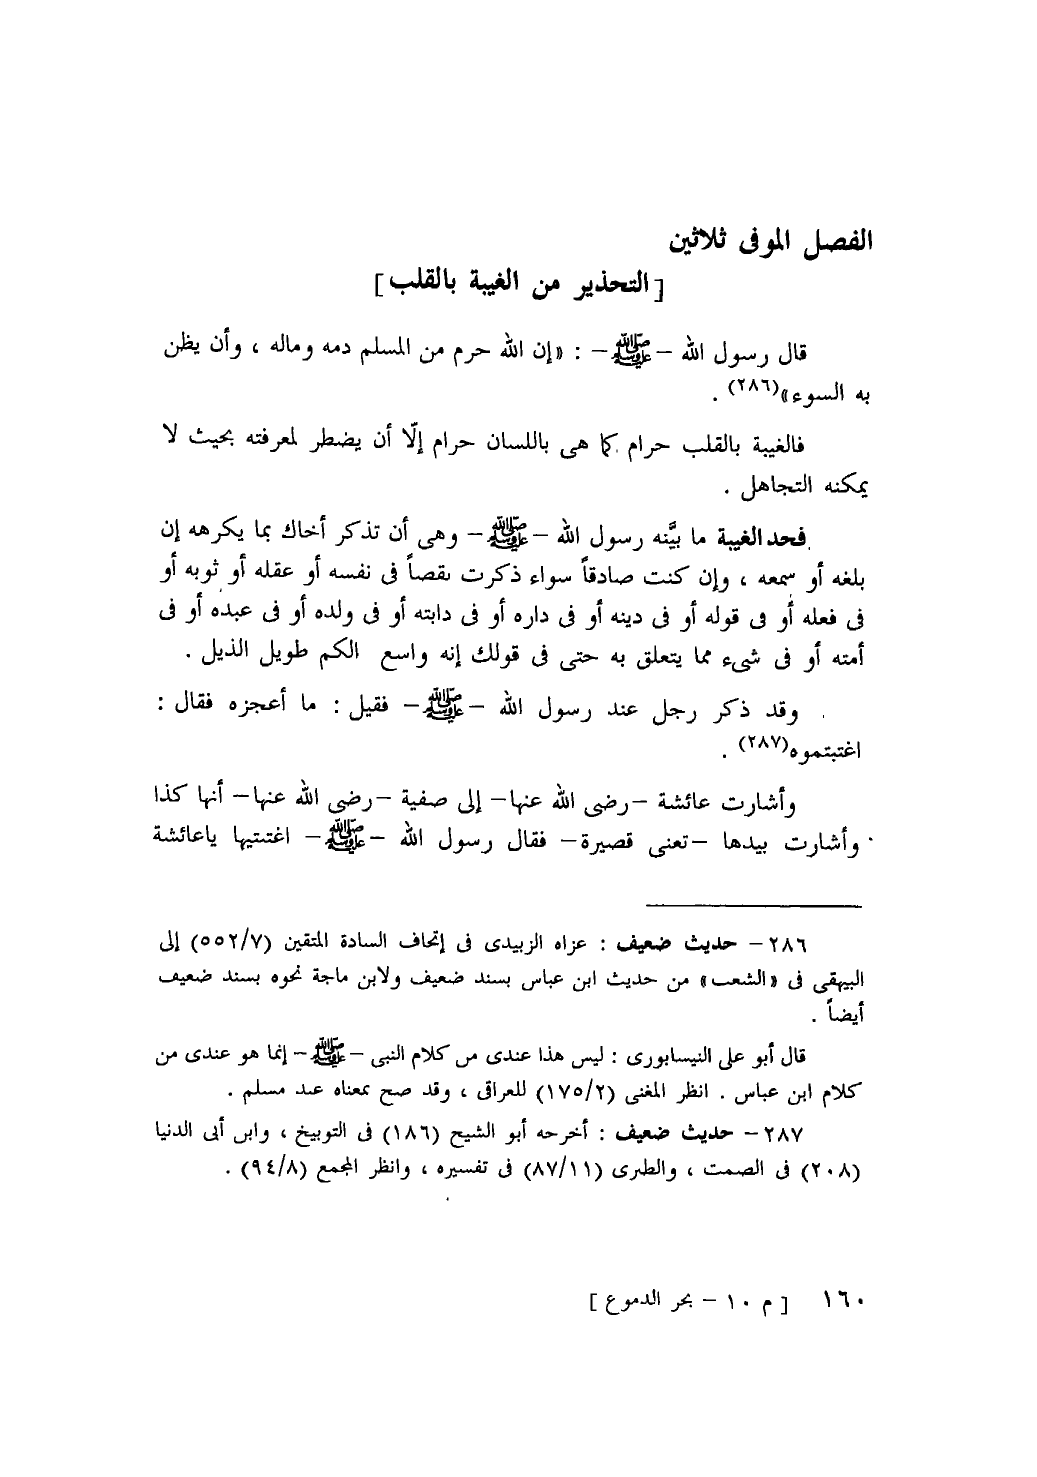 الفصل الموفى ثلاثين
[ التحذير من الغيبة بالقلب ]
قال رسول الله – ﷺ – : «إن الله حرم من المسلم دمه وماله ، وأن يظن
به السوء»(٢٨٦) .
فالغيبة بالقلب حرام كما هى باللسان حرام إلّا أن يضطر لمعرفته بحيث لا
يمكنه التجاهل .
فحد الغيبة ما بيَّنه رسول الله – ﷺ – وهى أن تذكر أخاك بما يكرهه إن
بلغه أو سمعه ، وإن كنت صادقاً سواء ذكرت نقصاً فى نفسه أو عقله أو ثوبه أو
فى فعله أو فى قوله أو فى دينه أو فى داره أو فى دابته أو فى ولده أو فى عبده أو فى
أمته أو فى شىء مما يتعلق به حتى فى قولك إنه واسع الكم طويل الذيل .
وقد ذكر رجل عند رسول الله – ﷺ – فقيل : ما أعجزه فقال :
اغتبتموه(٢٨٧) .
وأشارت عائشة –رضى الله عنها– إلى صفية –رضى الله عنها– أنها كذا
وأشارت بيدها –تعنى قصيرة– فقال رسول الله – ﷺ – اغتبتيها ياعائشة
٢٨٦ – حديث ضعيف : عزاه الزبيدى فى إتحاف السادة المتقين (٥٥٢/٧) إلى
البيهقى فى «الشعب» من حديث ابن عباس بسند ضعيف ولابن ماجة نحوه بسند ضعيف
أيضاً .
قال أبو على النيسابورى : ليس هذا عندى من كلام النبى – ﷺ – إنما هو عندى من
كلام ابن عباس . انظر المغنى (١٧٥/٢) للعراقى ، وقد صح بمعناه عند مسلم .
٢٨٧ – حديث ضعيف : أخرجه أبو الشيخ (١٨٦) فى التوبيخ ، وابن أبى الدنيا
(٢٠٨) فى الصمت ، والطبرى (٨٧/١١) فى تفسيره ، وانظر المجمع (٩٤/٨) .
١٦٠ [ م ١٠ – بحر الدموع ]